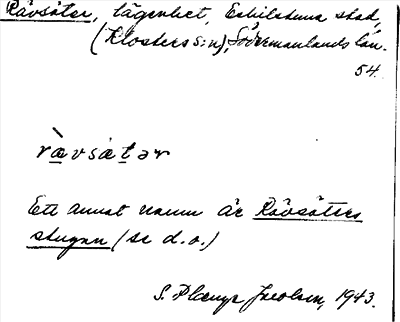 Rävsäter, lägenhet, Eskilstuna stad,
(Klosters s:n), Södermanlands län.
54.
ràvsätər
Ett annat namn är Rävsäters
stugan (se d.o.)
S. Jacobson, 1943.